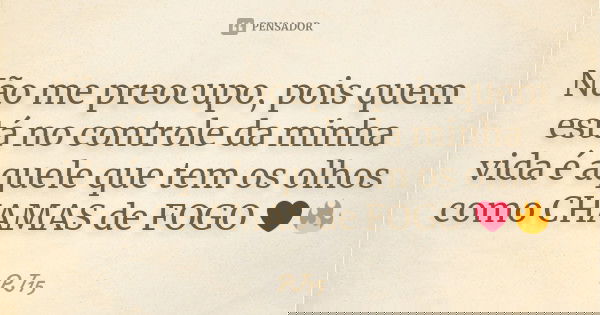 PENSADOR
Não me preocupo, pois quem
está no controle da minha
vida é aquele que tem os olhos
como CHAMAS de FOGO 🖤🔥